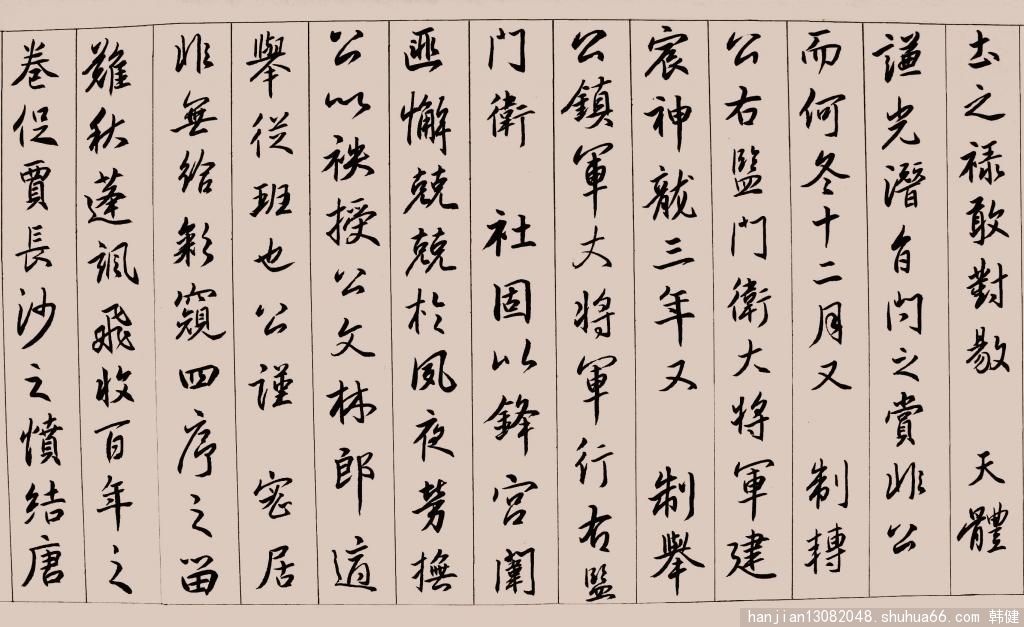 土之禄敢對敭 天體
謙光潛自問之賞非公
而何冬十二月又 制轉
公右監門衛大將軍建
宸神龍三年又 制舉
公鎮軍丈將軍行右監
門衛 社固以鋒宮闈
匪懈兢兢於夙夜勞撫
公以袟授公文林郎適
舉從班也公謹 密居
非無給彩窺四序之留
難秋蓬颯飛收百年之
卷促賈長沙之憤結唐
hanjian13082048.shuhua66.com 韩健